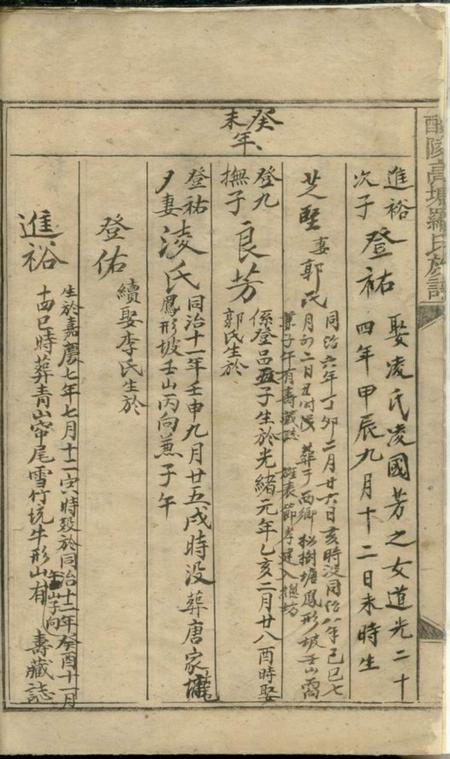 醴陵高塘羅氏族譜
癸未年
進裕次子 登祐 娶凌氏凌國芳之女道光二十
四年甲辰九月十二日未時生
芝堅妻郭氏 同治六年丁卯二月廿六日亥時没同治八年己巳七
月初二日丑時没 葬于西鄉松樹塘鳳形坡壬山丙
兼子午有壽藏誌 旌表節孝建入總坊
登九撫子 良芳 係登呂五子生於光緒元年乙亥二月廿八酉時娶
郭氏生於
登祐夕妻 淩氏 同治十一年壬申九月廿五戌時没葬唐家壠
鳳形坡壬山丙向兼子午
登佑 續娶李氏生於
進裕 生於嘉慶七年七月十二寅時殁於同治十二年癸酉十一月
十四巳時葬青山窂尾雪竹坑牛形山有 壽藏誌
午山子向